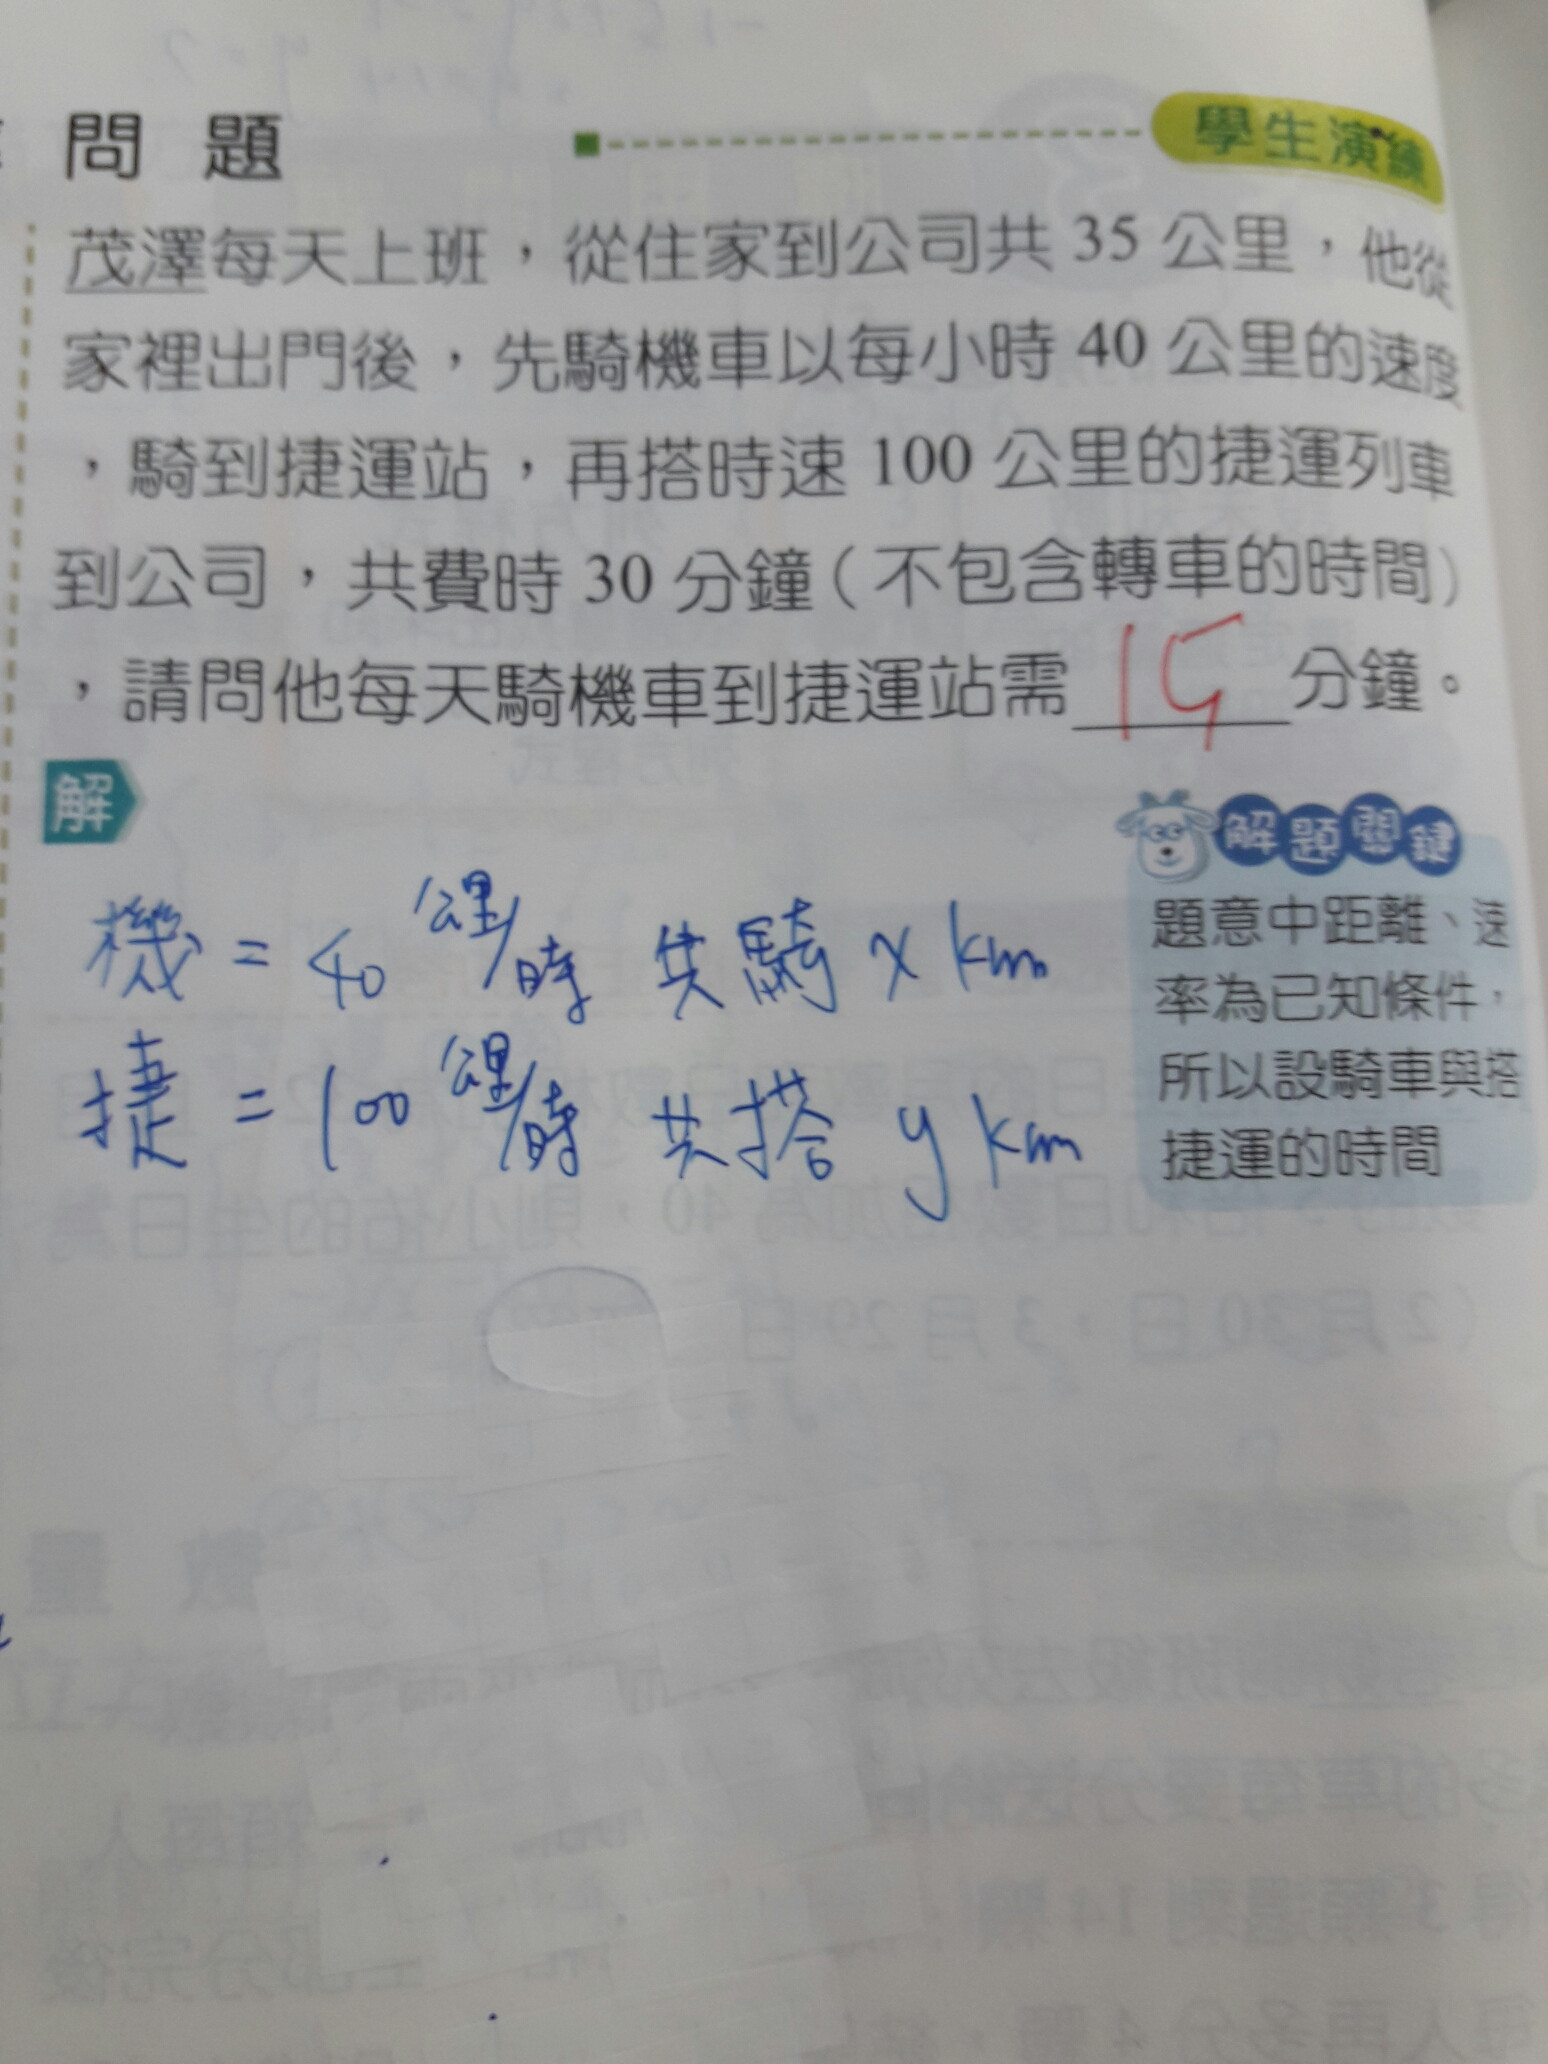 問題
學生演練
茂澤每天上班，從住家到公司共 35 公里，他從
家裡出門後，先騎機車以每小時 40 公里的速度
，騎到捷運站，再搭時速 100 公里的捷運列車
到公司，共費時 30 分鐘（不包含轉車的時間）
，請問他每天騎機車到捷運站需 15 分鐘。
解
機 = 40 公里/時 共騎 x km
捷 = 100 公里/時 共搭 y km
解題關鍵
題意中距離、速
率為已知條件，
所以設騎車與搭
捷運的時間